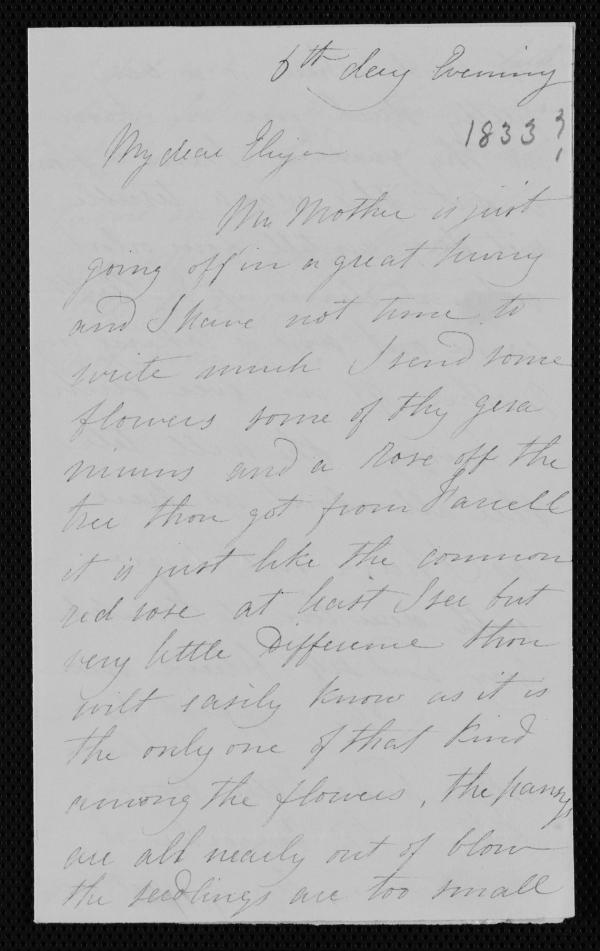 6th day Evening
1833 ?
My dear Eliza
My Mother is just
going off in a great hurry
and I have not time to
write much I send some
flowers some of thy gera
niums and a rose off the
tree thou got from Farrell
it is just like the common
red rose at least I see but
very little Difference thou
wilt easily know as it is
the only one of that kind
among the flowers, the pansys
are all nearly out of blow
the seedlings are too small